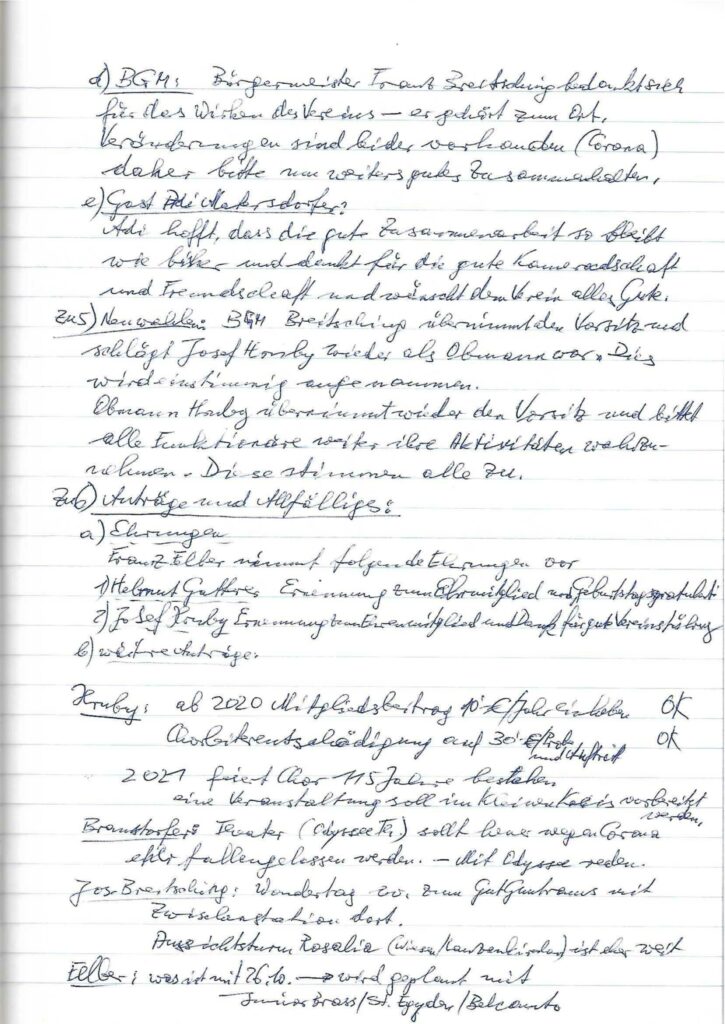 d) BGM: Bürgermeister Franz Breitsching bedankt sich
für das Wirken des Vereins – er gehört zum Ort,
Veränderungen sind leider vorhanden (Corona)
daher bitte um weiters gutes Zusammenhalten.
e) Gast Adi Matersdorfer:
Adi hofft, dass die gute Zusammenarbeit so bleibt
wie bisher und dankt für die gute Kameradschaft
und Freundschaft und wünscht dem Verein alles Gute.
Zu 5) Neuwahlen: BGM Breitsching übernimmt den Vorsitz und
schlägt Josef Hruby wieder als Obmann vor. Dies
wird einstimmig angenommen.
Obmann Hruby übernimmt wieder den Vorsitz und bittet
alle Funktionäre weiter ihre Aktivitäten wahrzu-
nehmen. Diese stimmen alle zu.
Zu 6) Anträge und Allfälliges:
a) Ehrungen
Franz Elber nimmt folgende Ehrungen vor
1) Helmut Ernennung zum Ehrmitglied und Geburtstagsgratulat
2) Josef Hruby Ernennung zum Ehrenmitglied und Dank für gute Vereinsführung
b) weitere Anträge:
Hruby: ab 2020 Mitgliedsbeitrag 10.-€/Jahr einheben OK
Chorleiterentschädigung auf 30.-€/Probe OK
und Auftritt
2021 feiert Chor 115 Jahre bestehen
eine Veranstaltung soll im kleinen Kreis vorbereitet
werden,
Theater (Odyssee) sollt heuer wegen Corona
eher fallengelassen werden. – Mit Odyssee reden.
Jos. Breitsching: Wandertag zum Gut Guntrams mit
Zwischenstation dort.
Aussichtsturm Rosalia (Wiesen/) ist eher weit
Elber: was ist mit 26.10. → wird geplant mit
Junior Brass/St. Egyden/Belcanto